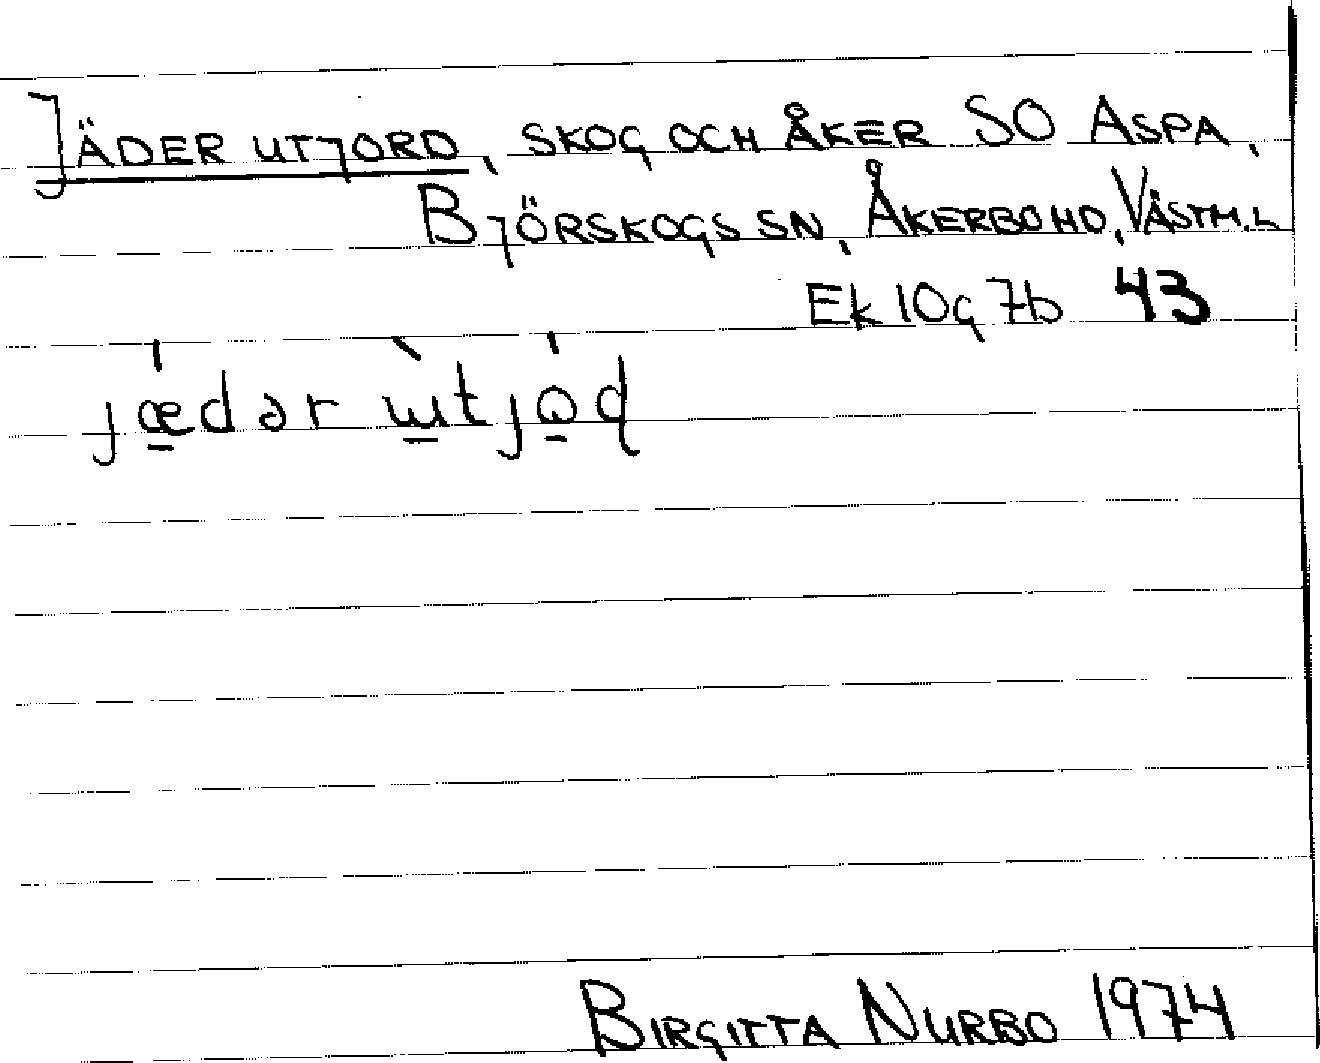 JÄDER UTJORD, SKOG OCH ÅKER SO ASPA,
BJÖRSKOGS SN, ÅKERBO HD, VÄSTM.L
Ek 10g 7b 43
jædər ɯtjo̱ɖ
BIRGITTA NURBO 1974